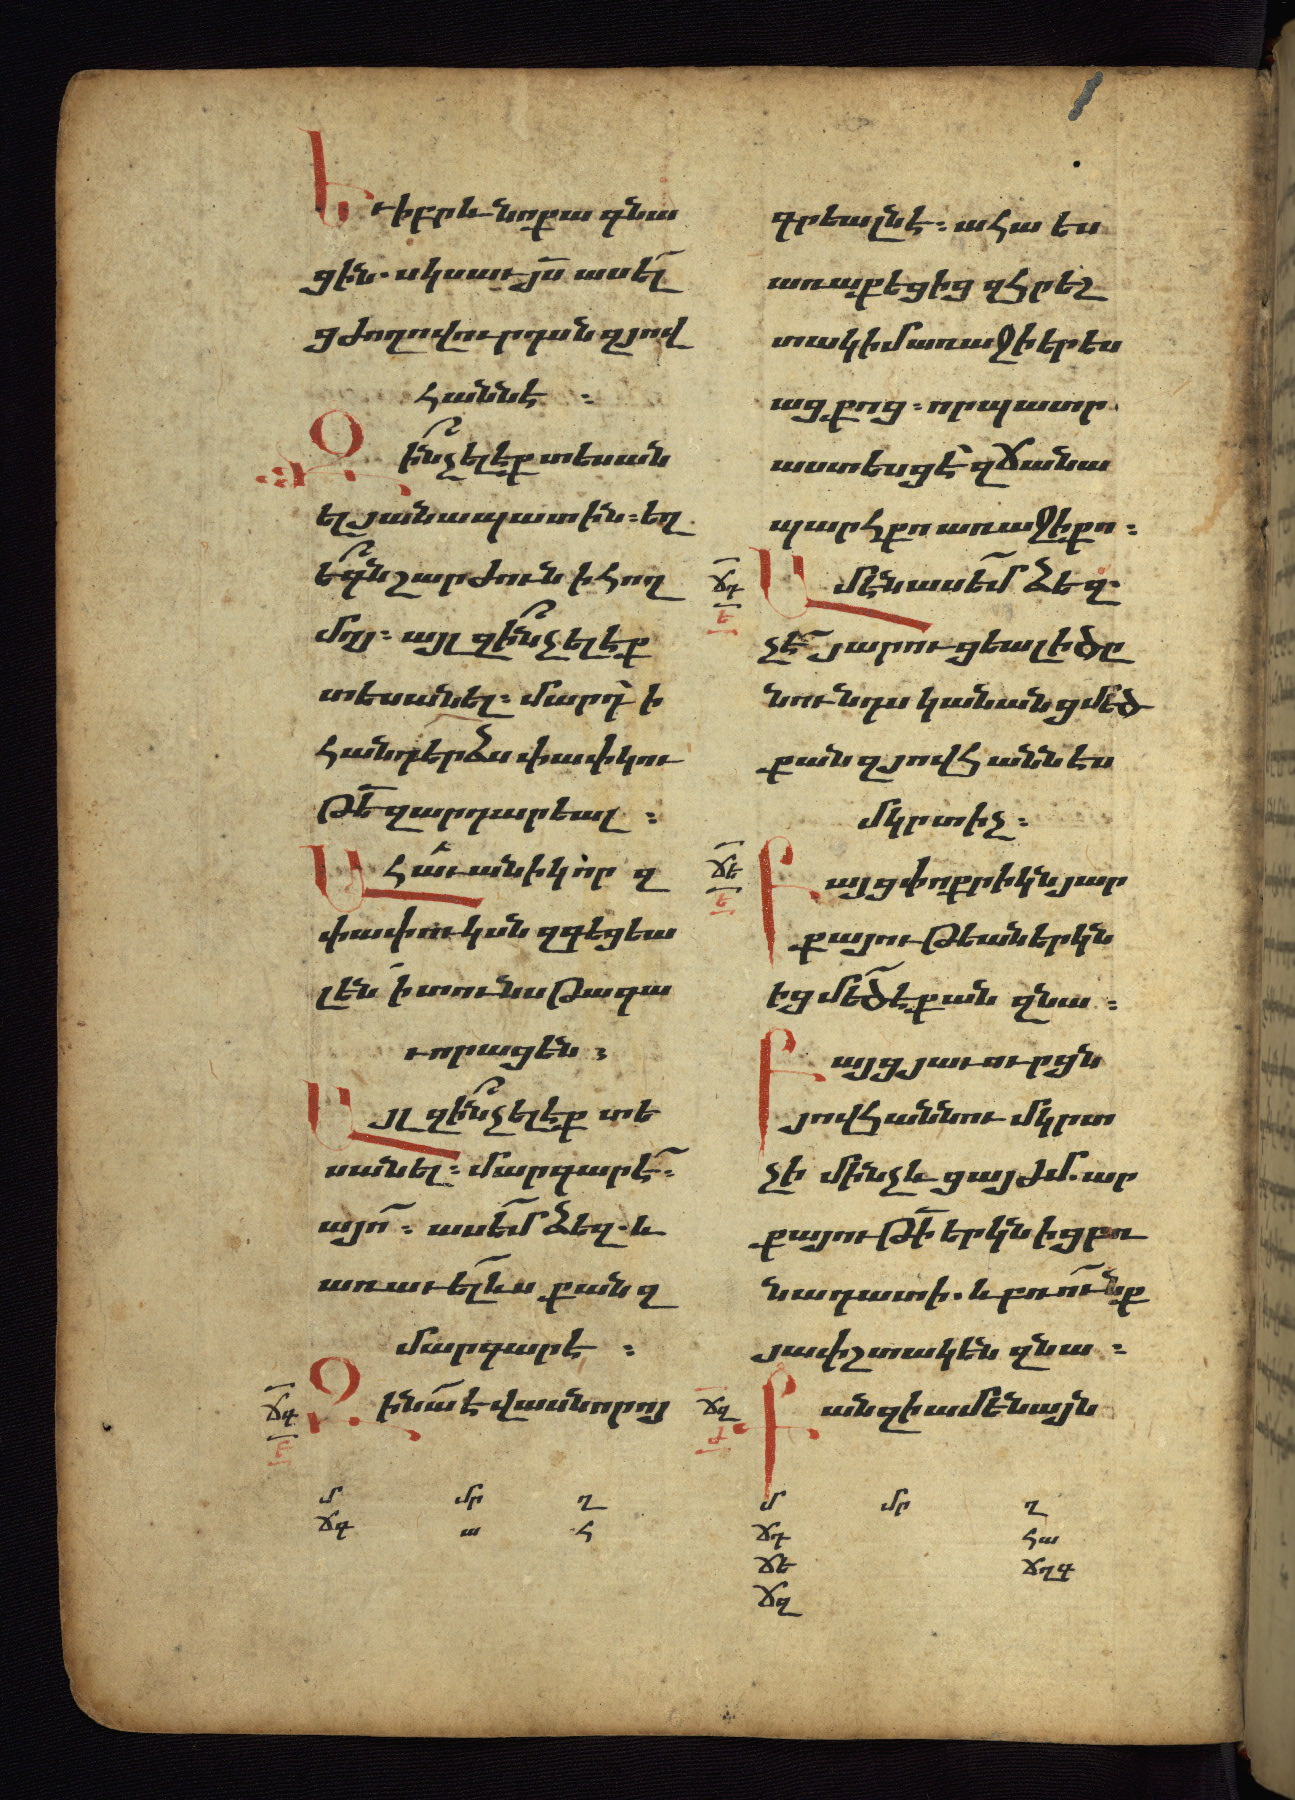 Եւ իբրև նոքա գնա
ցին. սկսաւ յս̃ ասել
ցժողովուրդսն զյով
հաննէ :
Զի՞նչ ելէք տեսան
ել յանապատին : եղ
է՞գն շարժուն ի հող
մոյ : այլ զի՞նչ ելէք
տեսանել : մարդ ի
հանդերձս փափկու
թե̃ զարդարեալ :
Ահաւանիկ որ զ
փափուկսն զգեցեա
լեն ի տունս թագա
ւորաց են :
Այլ զի՞նչ ելէք տե
սանել : մարգարէ՞ :
այո՛ : ասեմ ձեզ . և
առաւելևս քան զ
մարգարէ :
Զի նա է վասն որոյ
գրեալն է : ահա ես
առաքեցից զհրեշ
տակ իմ առաջի երես
աց քոց : որ պատր
աստեսցէ զճանա
պարհ քո առաջի քո :
Ամէն ասեմ ձեզ .
չէ̃ յարուցեալ ի ծը
նունդս կանանց մեծ
քան զյովհաննէս
մկրտիչ :
Բայց փոքրիկն յար
քայութեան երկն
ից մեծ է քան զնա :
Բայց յաւուրցն
յովհաննու մկրտ
չի մինչև ցայժմ. ար
քայութի̃ երկնից բռ
նադատի . և բռունք
յափշտակեն զնա :
Քանզի ամենայն
ճգ
ե
ճդ
ե
ճե
ե
ճզ
ժ
մ մր ղ
ճգ ա հ
մ մր ղ
ճդ հա
ճե ճղգ
ճզ